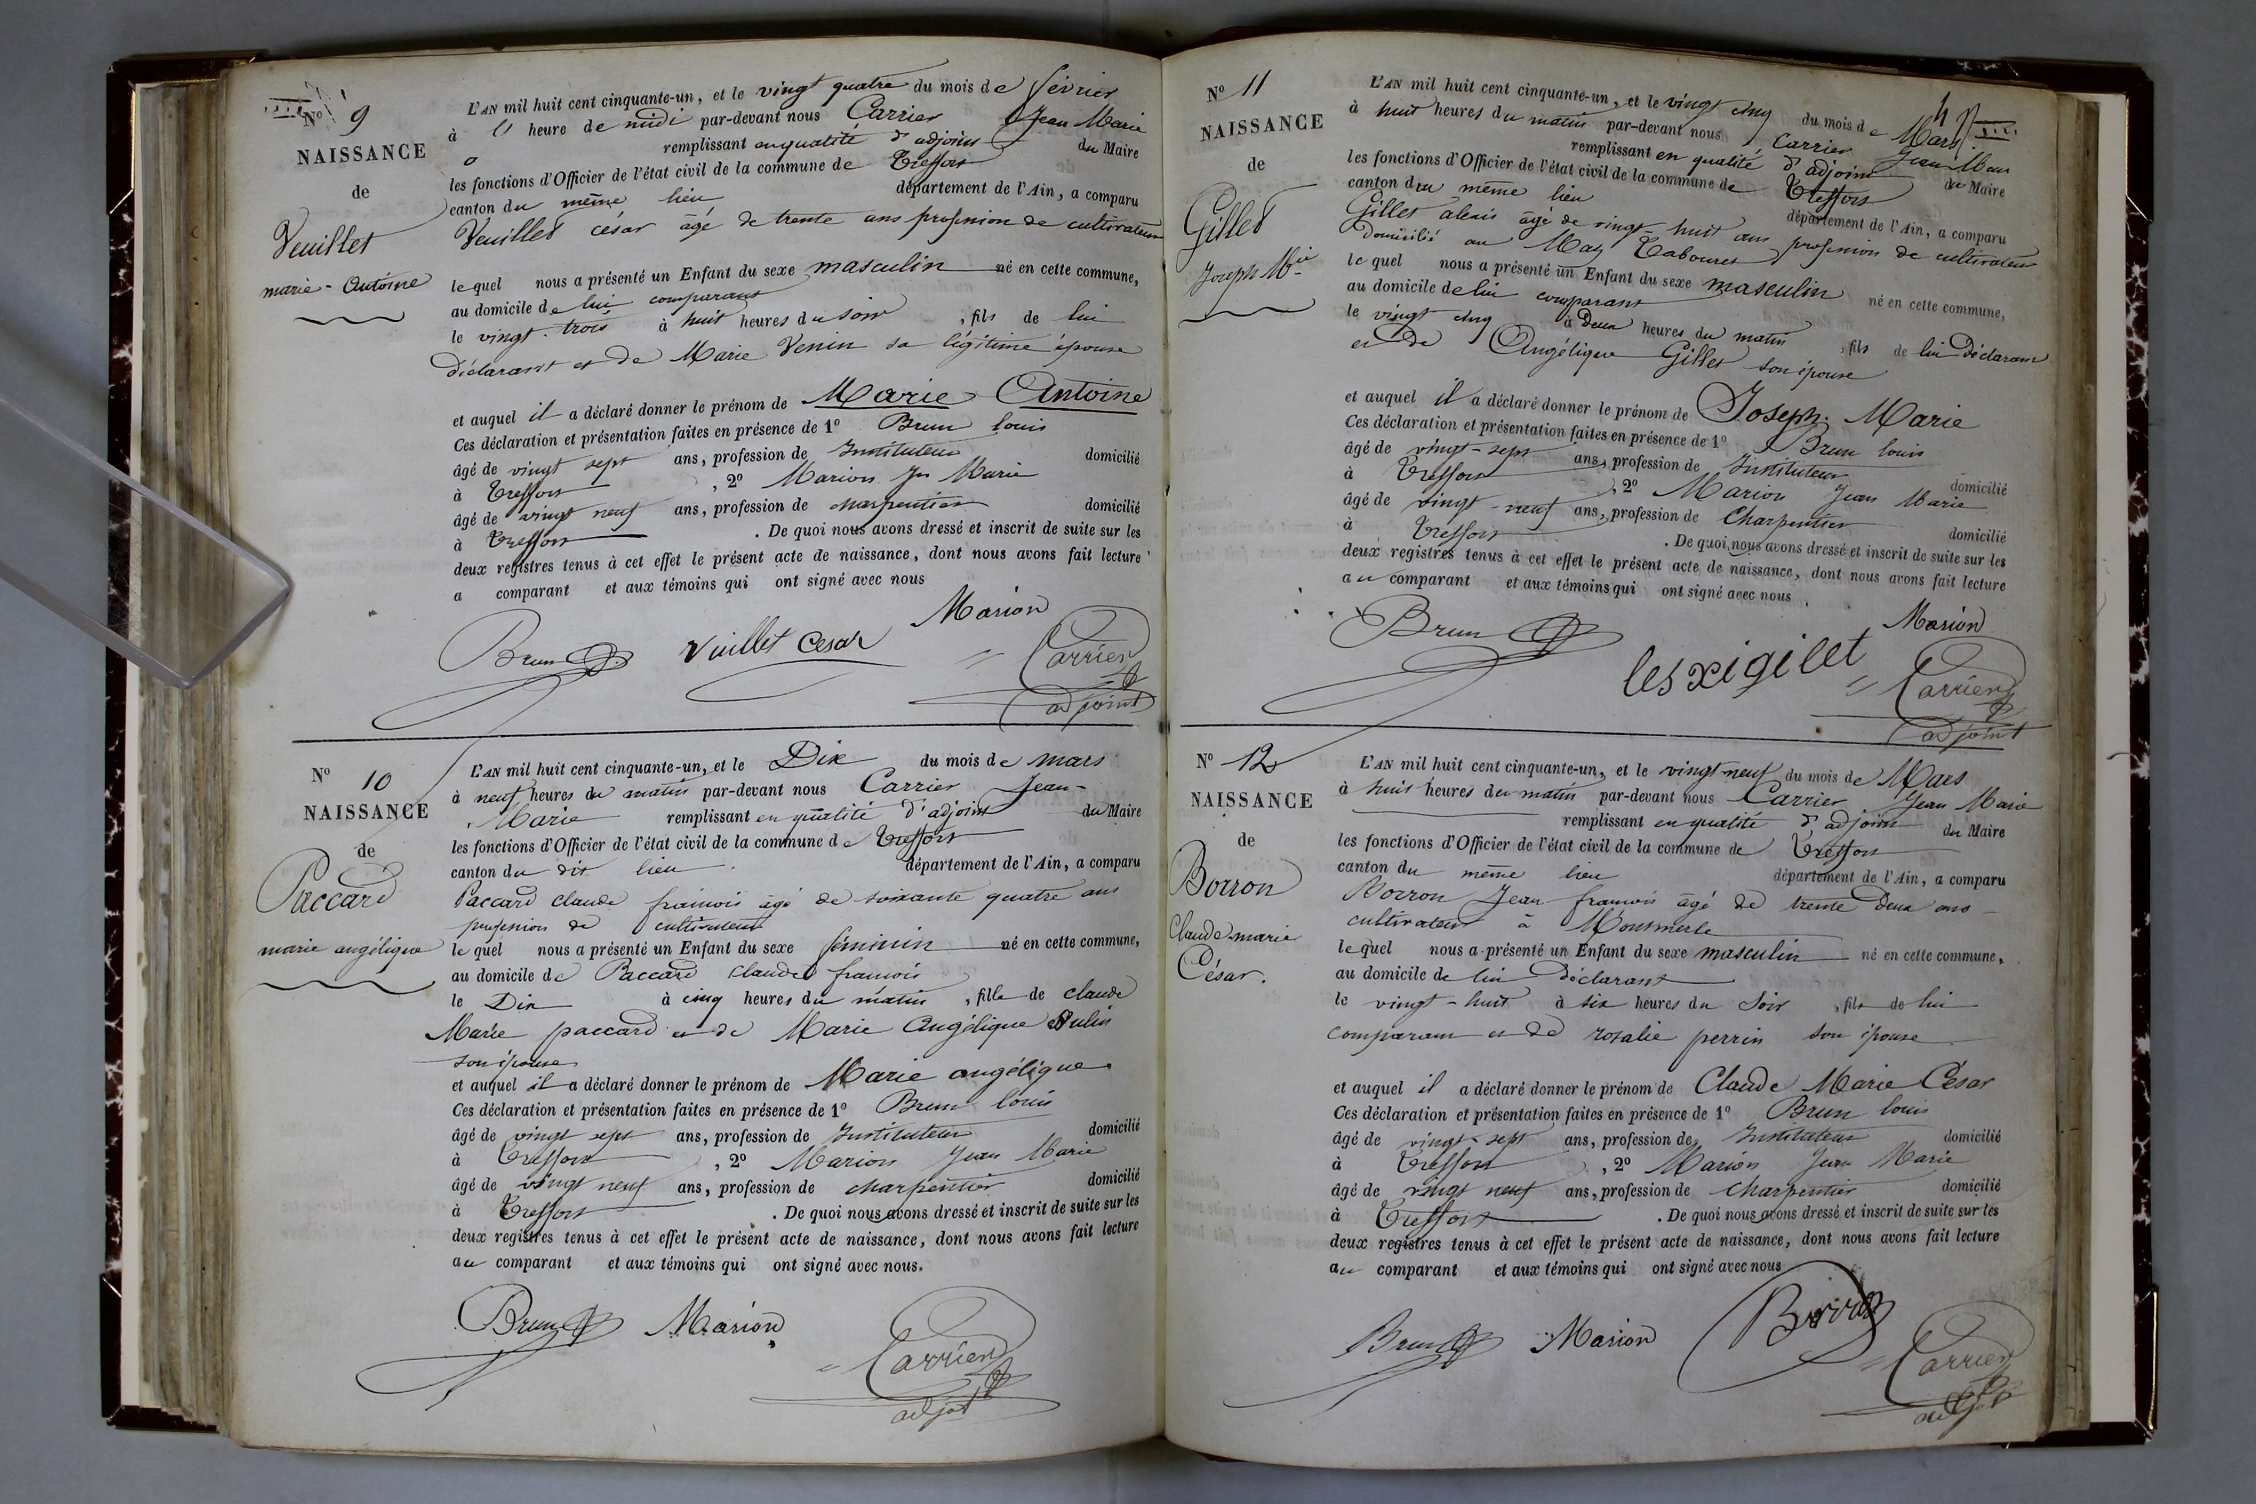 No 9
NAISSANCE
de
Vuillet
marie-Antoine
L'AN mil huit cent cinquante-un, et le vingt quatre du mois de février
à l' heure de midi par-devant nous Carrier Jean Marie
remplissant en qualité d'adjoint du Maire
les fonctions d'Officier de l'état civil de la commune de Treffort
canton du même lieu département de l'Ain, a comparu
Vuillet césar âgé de trente ans profession de cultivateur
lequel nous a présenté un Enfant du sexe masculin né en cette commune,
au domicile de lui comparant
le vingt-trois à huit heures du soir, fils de lui
déclarant et de Marie Venin sa légitime épouse
et auquel il a déclaré donner le prénom de Marie Antoine
Ces déclaration et présentation faites en présence de 1º Brun louis
âgé de vingt sept ans, profession de Instituteur domicilié
à Treffort, 2º Marion Jn Marie
âgé de vingt neuf ans, profession de charpentier domicilié
à Treffort. De quoi nous avons dressé et inscrit de suite sur les
deux registres tenus à cet effet le présent acte de naissance, dont nous avons fait lecture
a comparant et aux témoins qui ont signé avec nous
Marion
Brun Vuillet Cesar Carrier
adjoint
No 10
NAISSANCE
de
Paccard
marie angélique
L'AN mil huit cent cinquante-un, et le Dix du mois de mars
à neuf heures du matin par-devant nous Carrier Jean-
Marie remplissant en qualité d'adjoint du Maire
les fonctions d'Officier de l'état civil de la commune de Treffort
canton du dit lieu département de l'Ain, a comparu
Paccard claude francois âgé de soixante quatre ans
profession de cultivateur
lequel nous a présenté un Enfant du sexe féminin né en cette commune,
au domicile de Paccard claude francois
le Dix à cinq heures du matin, fille de claude
Marie paccard et de Marie Angélique
son épouse
et auquel il a déclaré donner le prénom de Marie angélique
Ces déclaration et présentation faites en présence de 1º Brun louis
âgé de vingt sept ans, profession de Instituteur domicilié
à Treffort, 2º Marion Jean Marie
âgé de vingt neuf ans, profession de charpentier domicilié
à Treffort. De quoi nous avons dressé et inscrit de suite sur les
deux registres tenus à cet effet le présent acte de naissance, dont nous avons fait lecture
au comparant et aux témoins qui ont signé avec nous.
Brun Marion Carrier
adjot
4
No 11
NAISSANCE
de
Gillet
Joseph Mie
L'AN mil huit cent cinquante-un, et le vingt cinq du mois de Mars
à huit heures du matin par-devant nous Carrier Jean Marie
remplissant en qualité d'adjoint du Maire
les fonctions d'Officier de l'état civil de la commune de Treffort
canton du même lieu département de l'Ain, a comparu
Gillet alexis âgé de vingt-huit ans profession de cultivateur
domicilié au Mas Tabouret
lequel nous a présenté un Enfant du sexe masculin né en cette commune,
au domicile de lui comparant
le vingt cinq à Deux heures du matin, fils de lui Déclarant
et de Angélique Gillet son épouse
et auquel il a déclaré donner le prénom de Joseph. Marie
Ces déclaration et présentation faites en présence de 1º Brun louis
âgé de vingt-sept ans, profession de Instituteur domicilié
à Treffort, 2º Marion Jean Marie
âgé de vingt-neuf ans, profession de Charpentier domicilié
à Treffort. De quoi nous avons dressé et inscrit de suite sur les
deux registres tenus à cet effet le présent acte de naissance, dont nous avons fait lecture
au comparant et aux témoins qui ont signé avec nous.
Marion
Brun lesxigilet Carrier
adjoint
No 12
NAISSANCE
de
Borron
Claude-marie
César.
L'AN mil huit cent cinquante-un, et le vingt-neuf du mois de Mars
à huit heures du matin par-devant nous Carrier Jean Marie
remplissant en qualité d'adjoint du Maire
les fonctions d'Officier de l'état civil de la commune de Treffort
canton du même lieu département de l'Ain, a comparu
Borron Jean francois âgé de trente Deux ans
cultivateur à Montmerle
lequel nous a présenté un Enfant du sexe masculin né en cette commune,
au domicile de lui déclarant
le vingt-huit à six heures du soir, fils de lui
comparant et de rosalie perrin son épouse
et auquel il a déclaré donner le prénom de Claude Marie César
Ces déclaration et présentation faites en présence de 1º Brun louis
âgé de vingt-sept ans, profession de Instituteur domicilié
à Treffort, 2º Marion Jean Marie
âgé de vingt neuf ans, profession de Charpentier domicilié
à Treffort. De quoi nous avons dressé et inscrit de suite sur les
deux registres tenus à cet effet le présent acte de naissance, dont nous avons fait lecture
au comparant et aux témoins qui ont signé avec nous
Brun Marion Borron Carrier
adjot